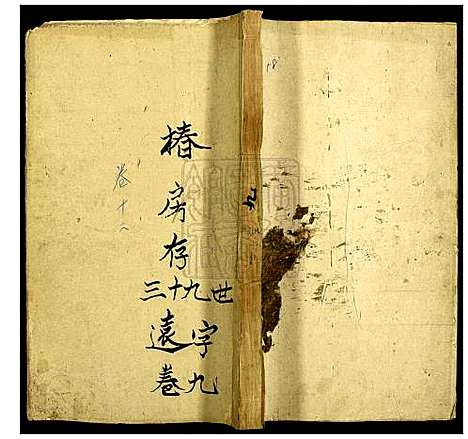 椿
房
存
三十九世
遠字
卷九
卷十八
九
18